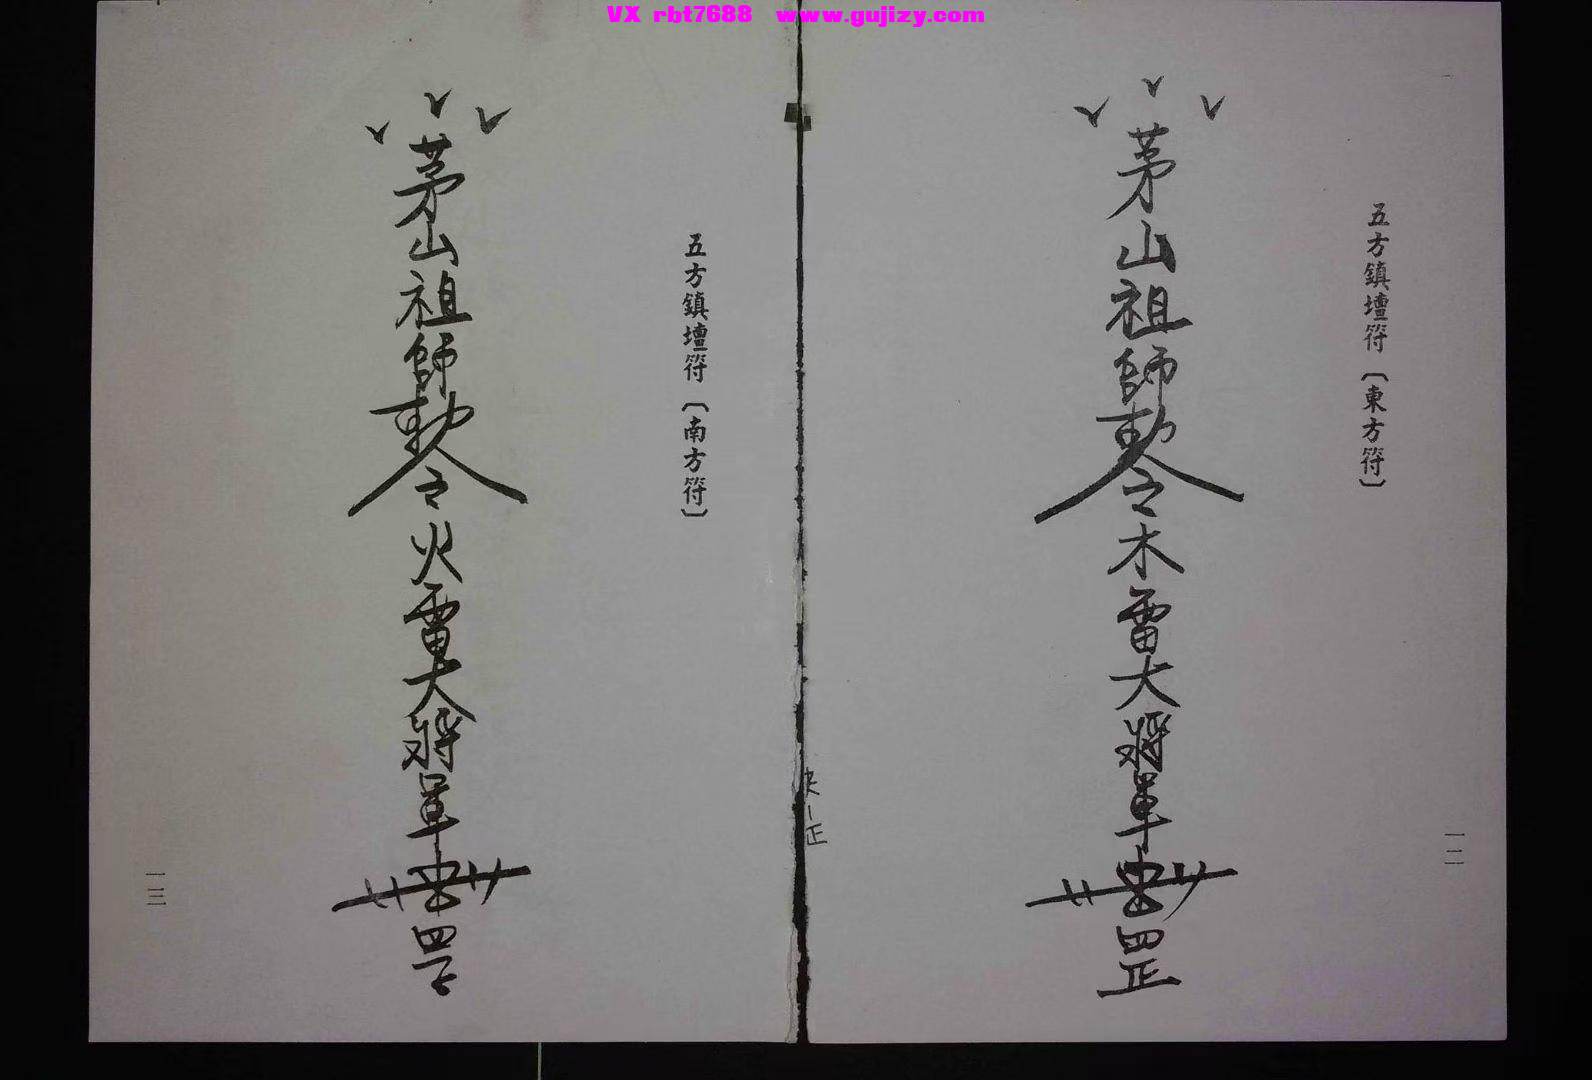 VX rbt7688 www.gujizy.com
五方鎮壇符〔東方符〕
茅山祖師勅令木雷大將軍
罡
一二
正
五方鎮壇符〔南方符〕
茅山祖師勅令火雷大將軍
一三